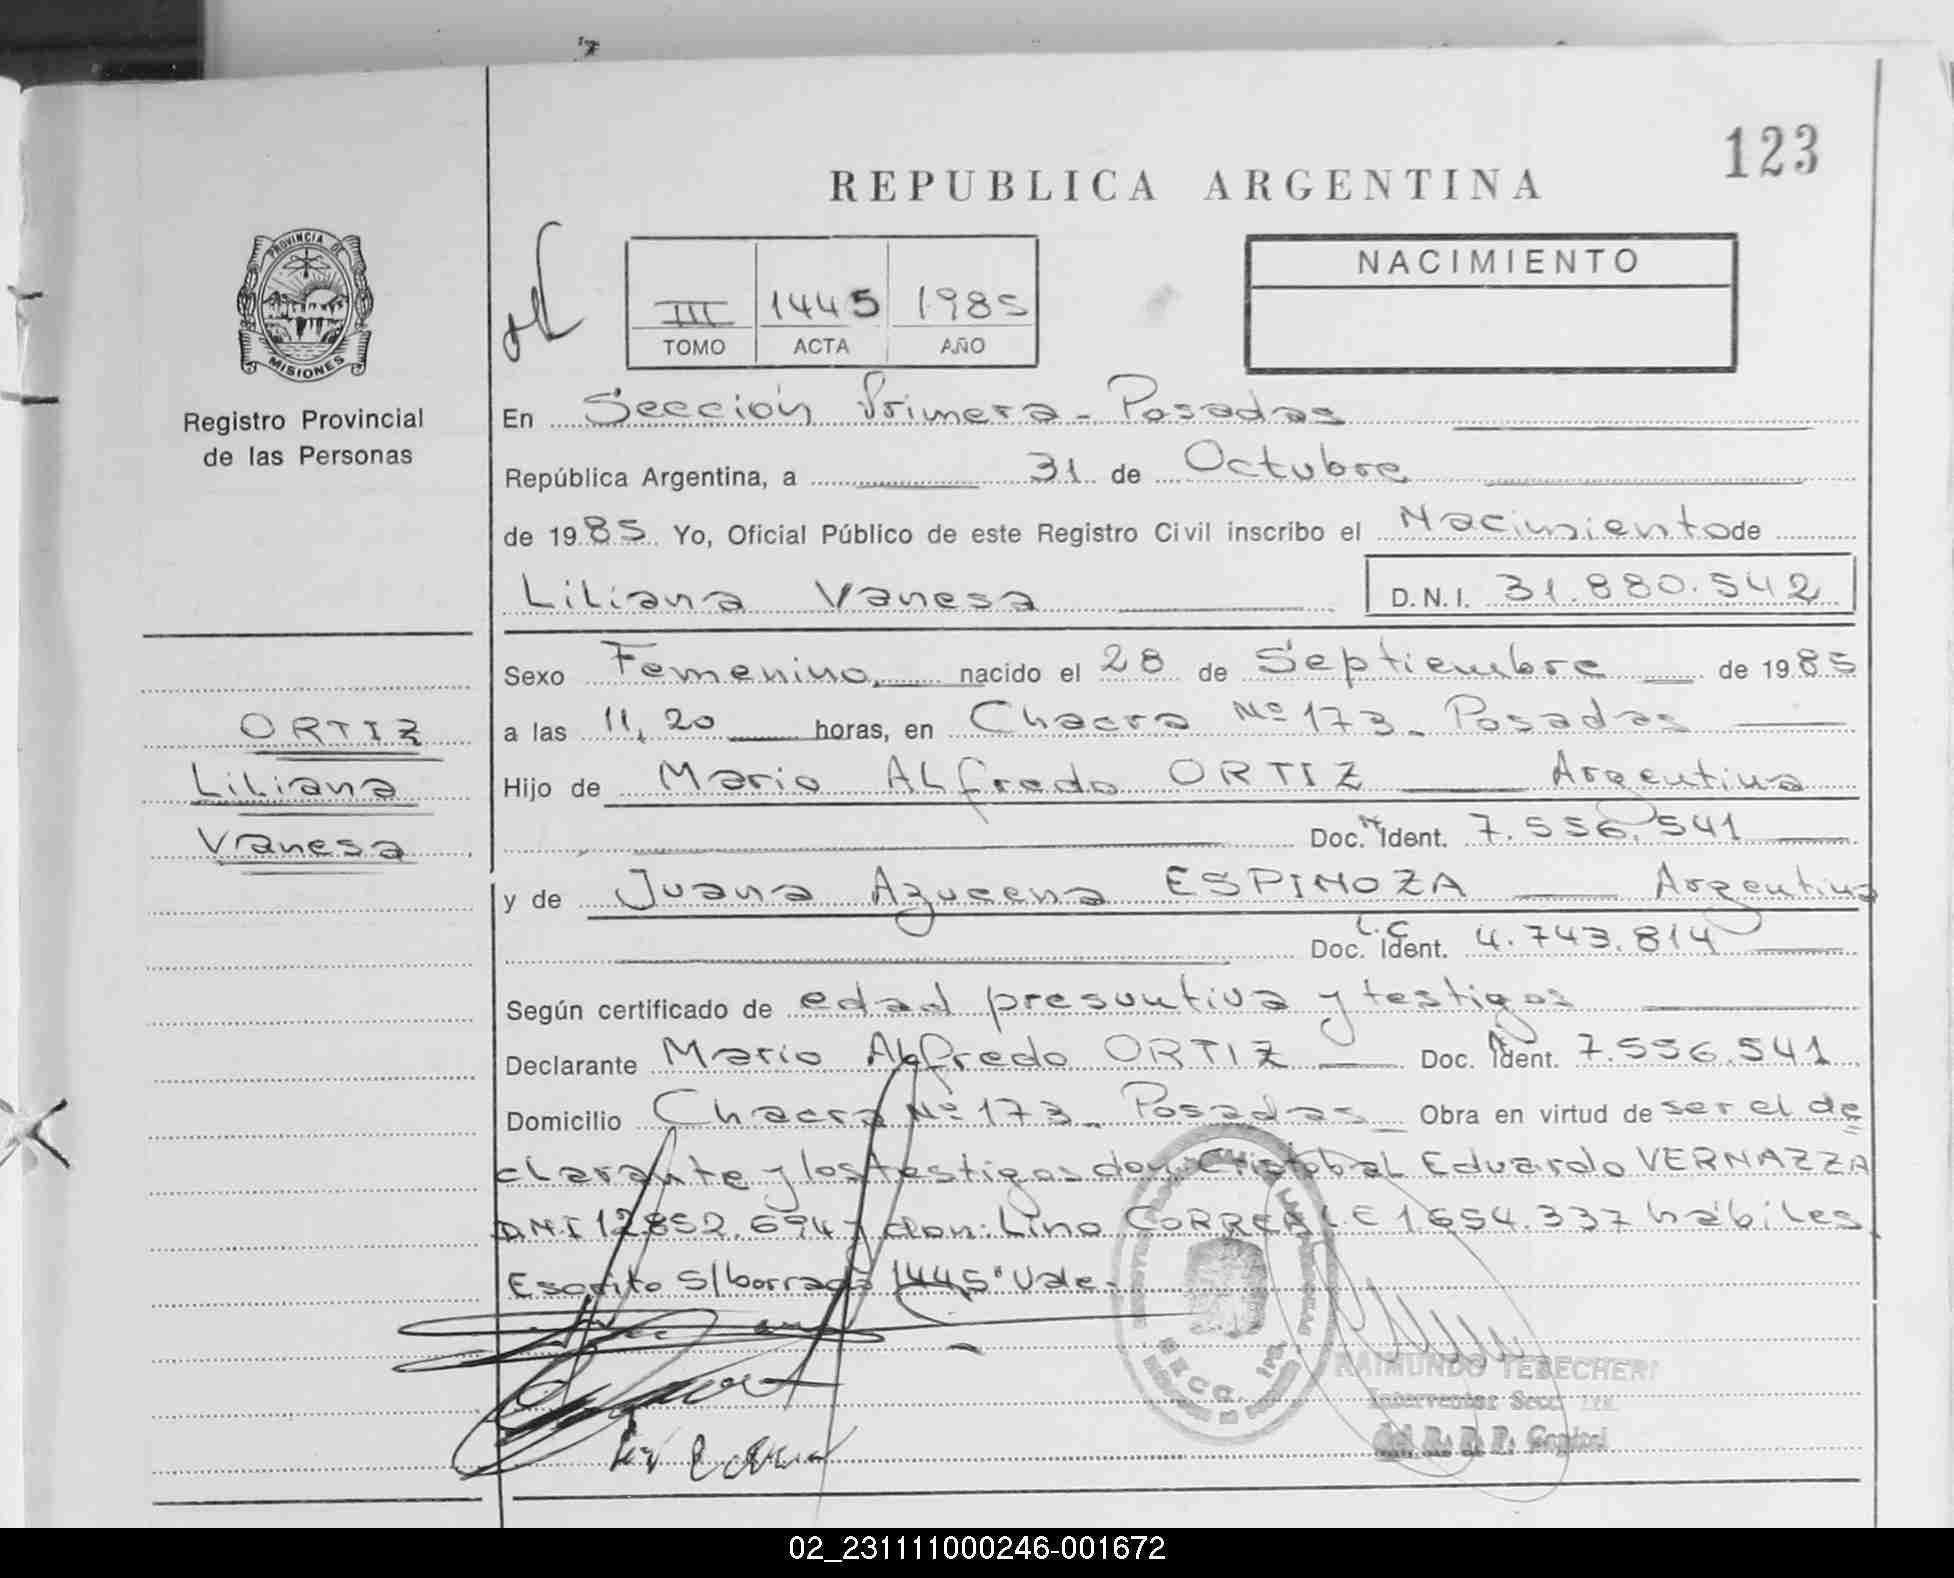 123
REPUBLICA ARGENTINA
PROVINCIA DE
MISIONES
Registro Provincial
de las Personas
III 1445 1985
TOMO ACTA AÑO
NACIMIENTO
En Sección Primera - Posadas
República Argentina, a 31 de Octubre
de 1985 Yo, Oficial Público de este Registro Civil inscribo el Nacimiento de
Liliana Vanesa D.N.I. 31.880.542
Sexo Femenino, nacido el 28 de Septiembre de 1985
ORTIZ
Liliana
Vanesa
a las 11,20 horas, en Chacra Nº 173 - Posadas
Hijo de Mario Alfredo ORTIZ Argentina
Doc. Ident. 7.556.541
y de Juana Azucena ESPINOZA Argentina
L.C
Doc. Ident. 4.743.814
Según certificado de edad presuntiva y testigos
Declarante Mario Alfredo ORTIZ Doc. Ident. 7.556.541
Domicilio Chacra Nº 173 - Posadas - Obra en virtud de ser el de
clarante y los testigos don: Cristobal Eduardo VERNAZZA
D.N.I 12.852.694 y don: Lino CORREA L.E 1.654.337 hábiles
Escrito S/borrado 1445 "Vale.
RAIMUNDO TEBECHERI
Interventor Secc. 1ra.
del R. P. P. Capital
02_231111000246-001672